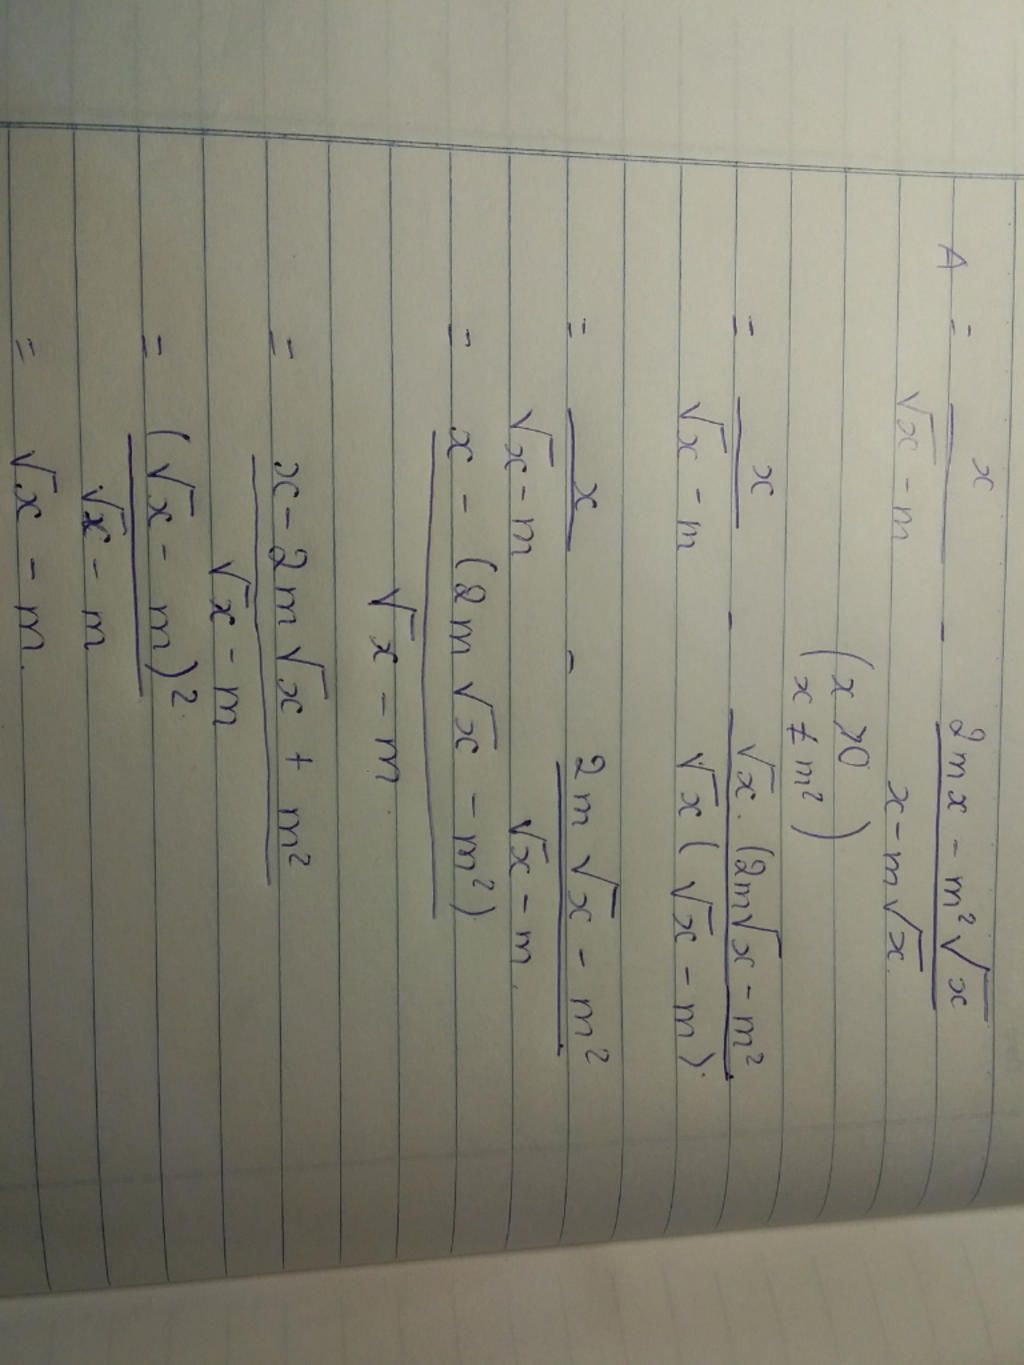 A = x / (√x - m) - (2mx - m²√x) / (x - m√x)
(x >0
x ≠ m²)
= x / (√x - m) - √x. (2m√x - m²) / √x (√x - m).
= x / (√x - m) - (2m√x - m²) / (√x - m).
= x - (2m√x - m²) / (√x - m).
= (x - 2m√x + m²) / (√x - m)
= (√x - m)² / (√x - m)
= √x - m.